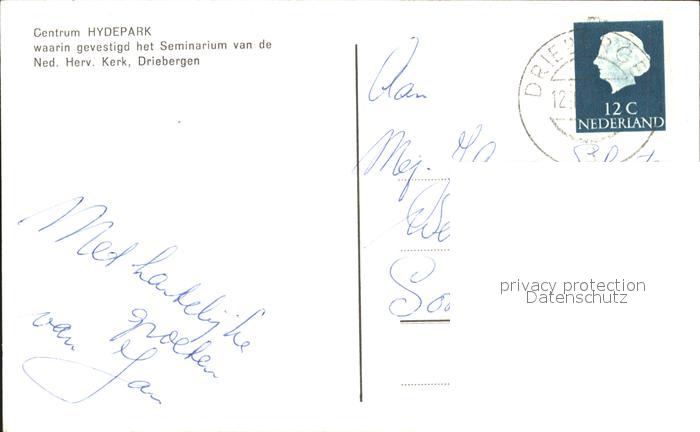 Centrum HYDEPARK
waarin gevestigd het Seminarium van de
Ned. Herv. Kerk, Driebergen
Met hartelijke
groeten
van Jan
Aan
Mej.
DRIEBERGE
12
12 C
NEDERLAND
privacy protection
Datenschutz